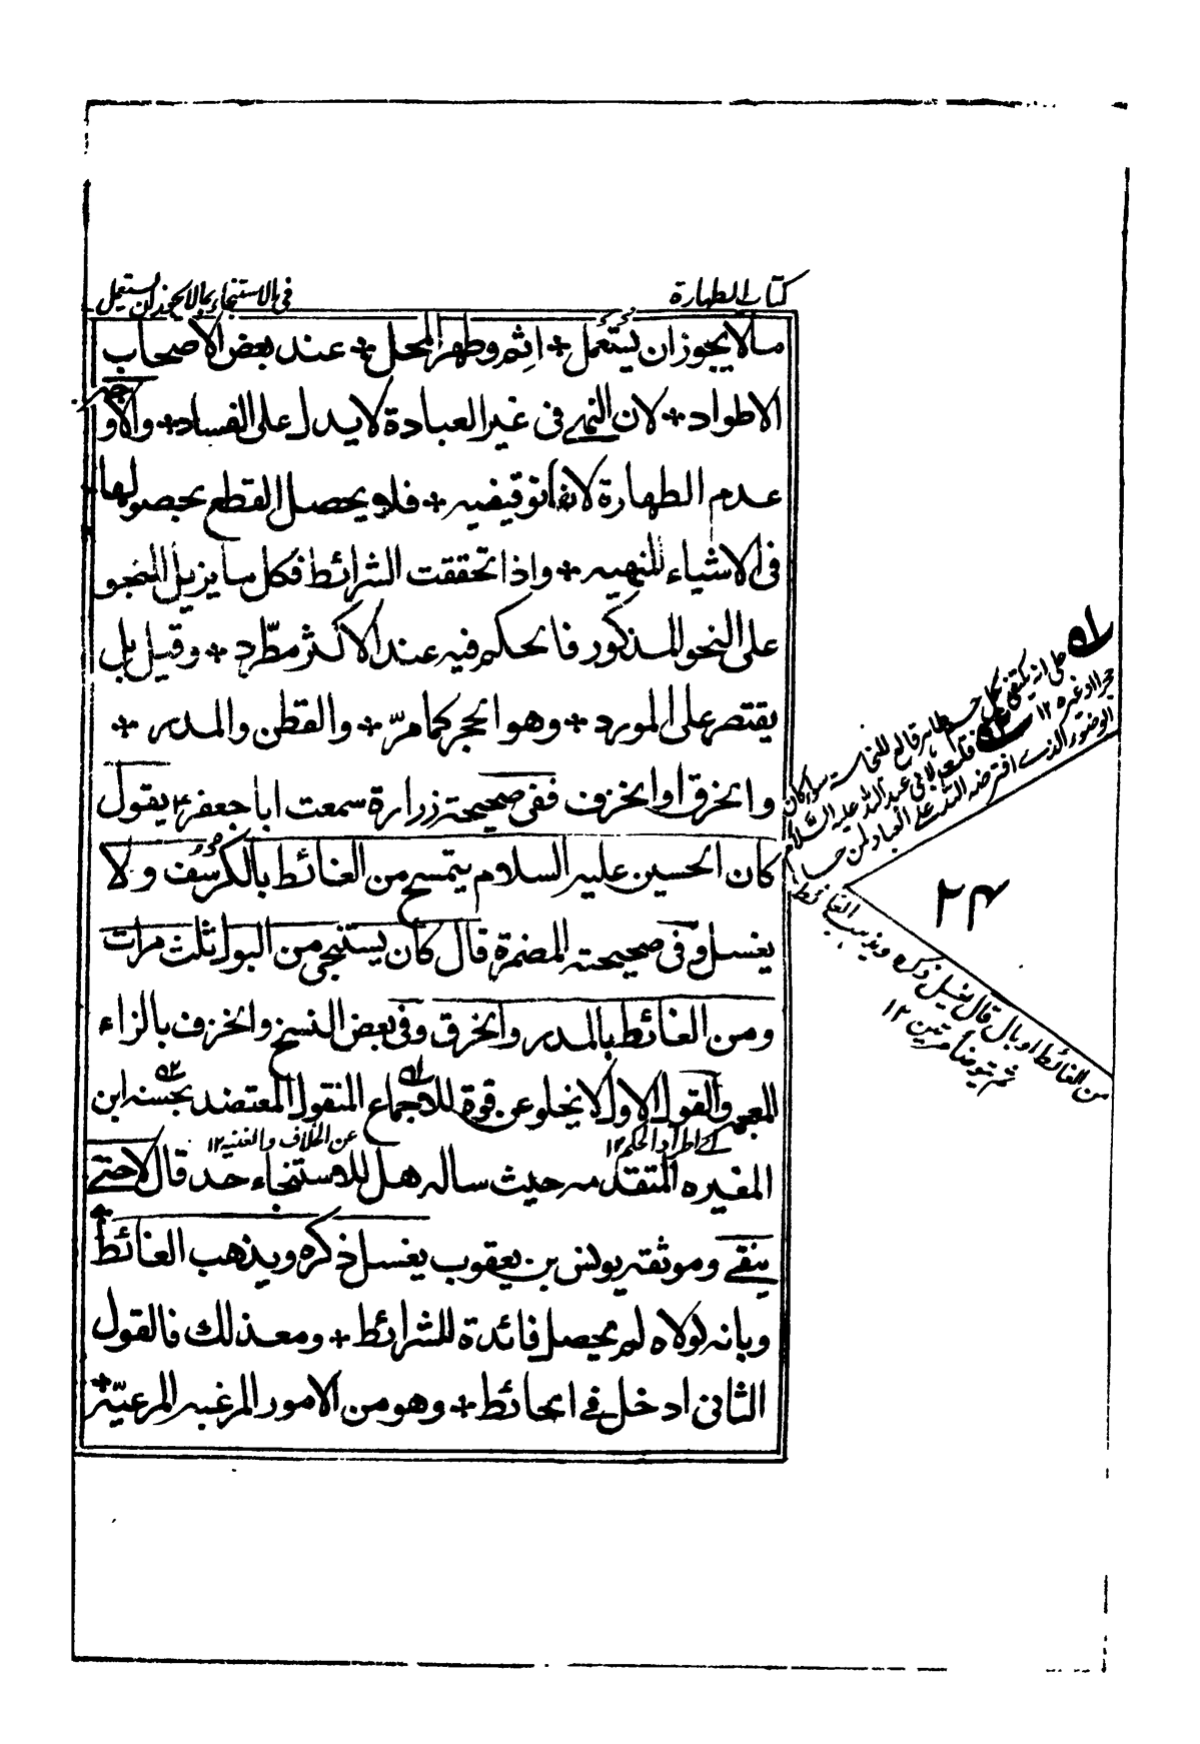 كتاب الطهارة
في الاستنجاء بما لا يجوز ان يستعمل
ما لا يجوز ان يُستُعمل + اثِم وطهر المحل + عند بعض الاصحاب
الاطواد + لان النهي في غير العبادة لا يدل على الفساد + والاو
عدم الطهارة لانها توقيفيه + فلا يحصل القطع بحصولها
في الاشياء المنهيه + واذا تحققت الشرائط فكل ما يزيل النجو
على النحو المذكور فالحكم فيه عند الاكثر مطّرد + وقيل بل
يقتصر على المورد + وهو الحجر كما مرّ + والقطن والمدر +
والخرق او الخزف ففي صحيحة زرارة سمعت ابا جعفر ع يقول
كان الحسين عليه السلام يتمسح من الغائط بالكرسُف ولا
يغسل وفي صحيحته المضمرة قال كان يستنجي من البول ثلث مرات
ومن الغائط بالمدر والخرق وفي بعض النسخ والخزف بالزاء
المعجمه والقول الاول لا يخلو عن قوة للاجماع المنقول المعتضد بحسنه ابن
اے اطراد الحكم ١٢
عن الخلاف والغنيه ١٢
المغيره المتقدمه حيث ساله هل للاستنجاء حد قال لا حتے
ينقے وموثقه يونس بن يعقوب يغسل ذكره ويذهب الغائط
وبانه لولاه لم يحصل فائدة للشرائط + ومع ذلك فالقول
الثاني ادخل في الحائط + وهو من الامور المرغبه المرعيّه +
على انه يكتفى بكل جسم طاهر قالع للنجاسة سواء كان
حجرا او غيره ١٢
قلت لابي عبد الله عليه السّلام
الوضوء الذے افترضه الله على العباد لمن جاء
من الغائط او بال قال يغسل ذكره ويذهب الغائط
ثم يتوضأ مرتين ١٢
٢٤